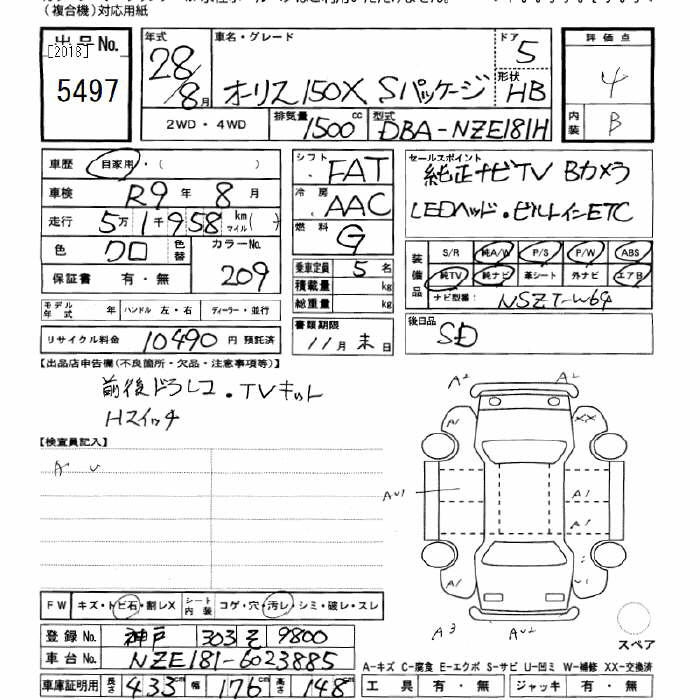 (複合機)対応用紙
出品No.
[2018]
5497
年式
28/8月
車名・グレード
オーリス150X Sパッケージ
ドア
5
形状
HB
2WD・4WD
排気量
1500cc
型式
DBA-NZE181H
評価点
4
内装
B
車歴 自家用・( )
車検 R9年8月
走行 5万1千958km マイル( )
色 クロ 色替 カラーNo. 209
保証書 有・無
モデル年式 年 ハンドル 左・右 ディーラー・並行
リサイクル料金 10490円 預託済
シフト FAT
冷房 AAC
燃料 G
乗車定員 5名
積載量 kg
総重量 kg
書類期限
11月末日
セールスポイント
純正ナビTV Bカメラ
LEDヘッド・ビルトインETC
装備品
S/R 純A/W P/S P/W ABS
純TV 純ナビ 革シート 外ナビ エアB
ナビ型番: NSZT-W64
後日品
SD
【出品店申告欄(不良箇所・欠品・注意事項等)】
前後ドラレコ・TVキット
Hスイッチ
【検査員記入】
A U
A2 A2
XX
AU1
A1
A1
A1 U1
A3 AU2
スペア
FW キズ・トビ石・割レX シート内装 コゲ・穴・汚レ・シミ・破レ・スレ
登録No. 神戸 303 そ 9800
車台No. NZE181-6023885
車庫証明用 長さ 433cm 幅 176cm 高さ 148cm
A-キズ C-腐食 E-エクボ S-サビ U-凹ミ W-補修 XX-交換済
工具 有・無 ジャッキ 有・無